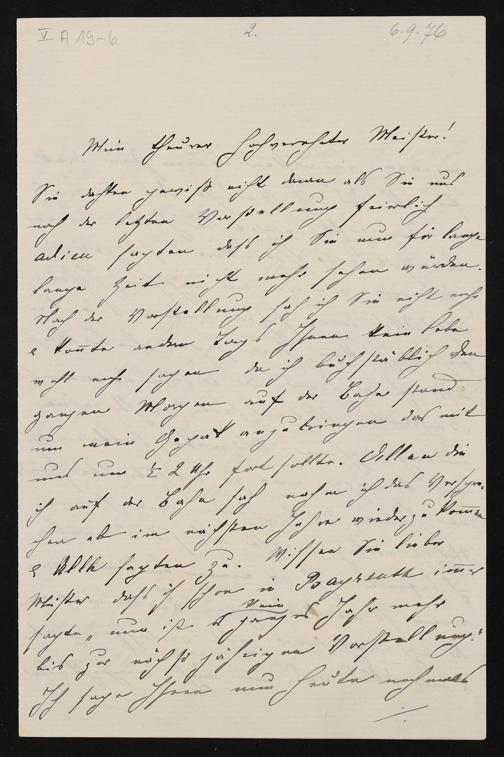 V A 19-6.
2.
6.9.76
Mein theurer hochverehrter Meister!
Sie dachten gewiß nicht daran als Sie uns
nach der letzten Vorstellung feierlich
adieu sagten daß ich Sie nun für lange
lange Zeit nicht mehr sehen würden.
Nach der Vorstellung sah ich Sie nicht mehr
& konnte andern Tags Ihnen kein lebe
wohl mehr sagen da ich buchstäblich den
ganzen Morgen auf der Bahn stand
um mein Gepäk anzubringen das mit
uns um ½ 2 Uhr fort sollte. Allen die
ich auf der Bahn sah nahm ich das Verspre-
chen ab im nächsten Jahre wiederzukommen
& Alle sagten zu. Wissen Sie lieber
Meister daß ich schon in Bayreuth immer
sagte „nun ist kein ganzes Jahr mehr
bis zur nächstjährigen Vorstellung."
Ich sage Ihnen nun heute nochmals
./.